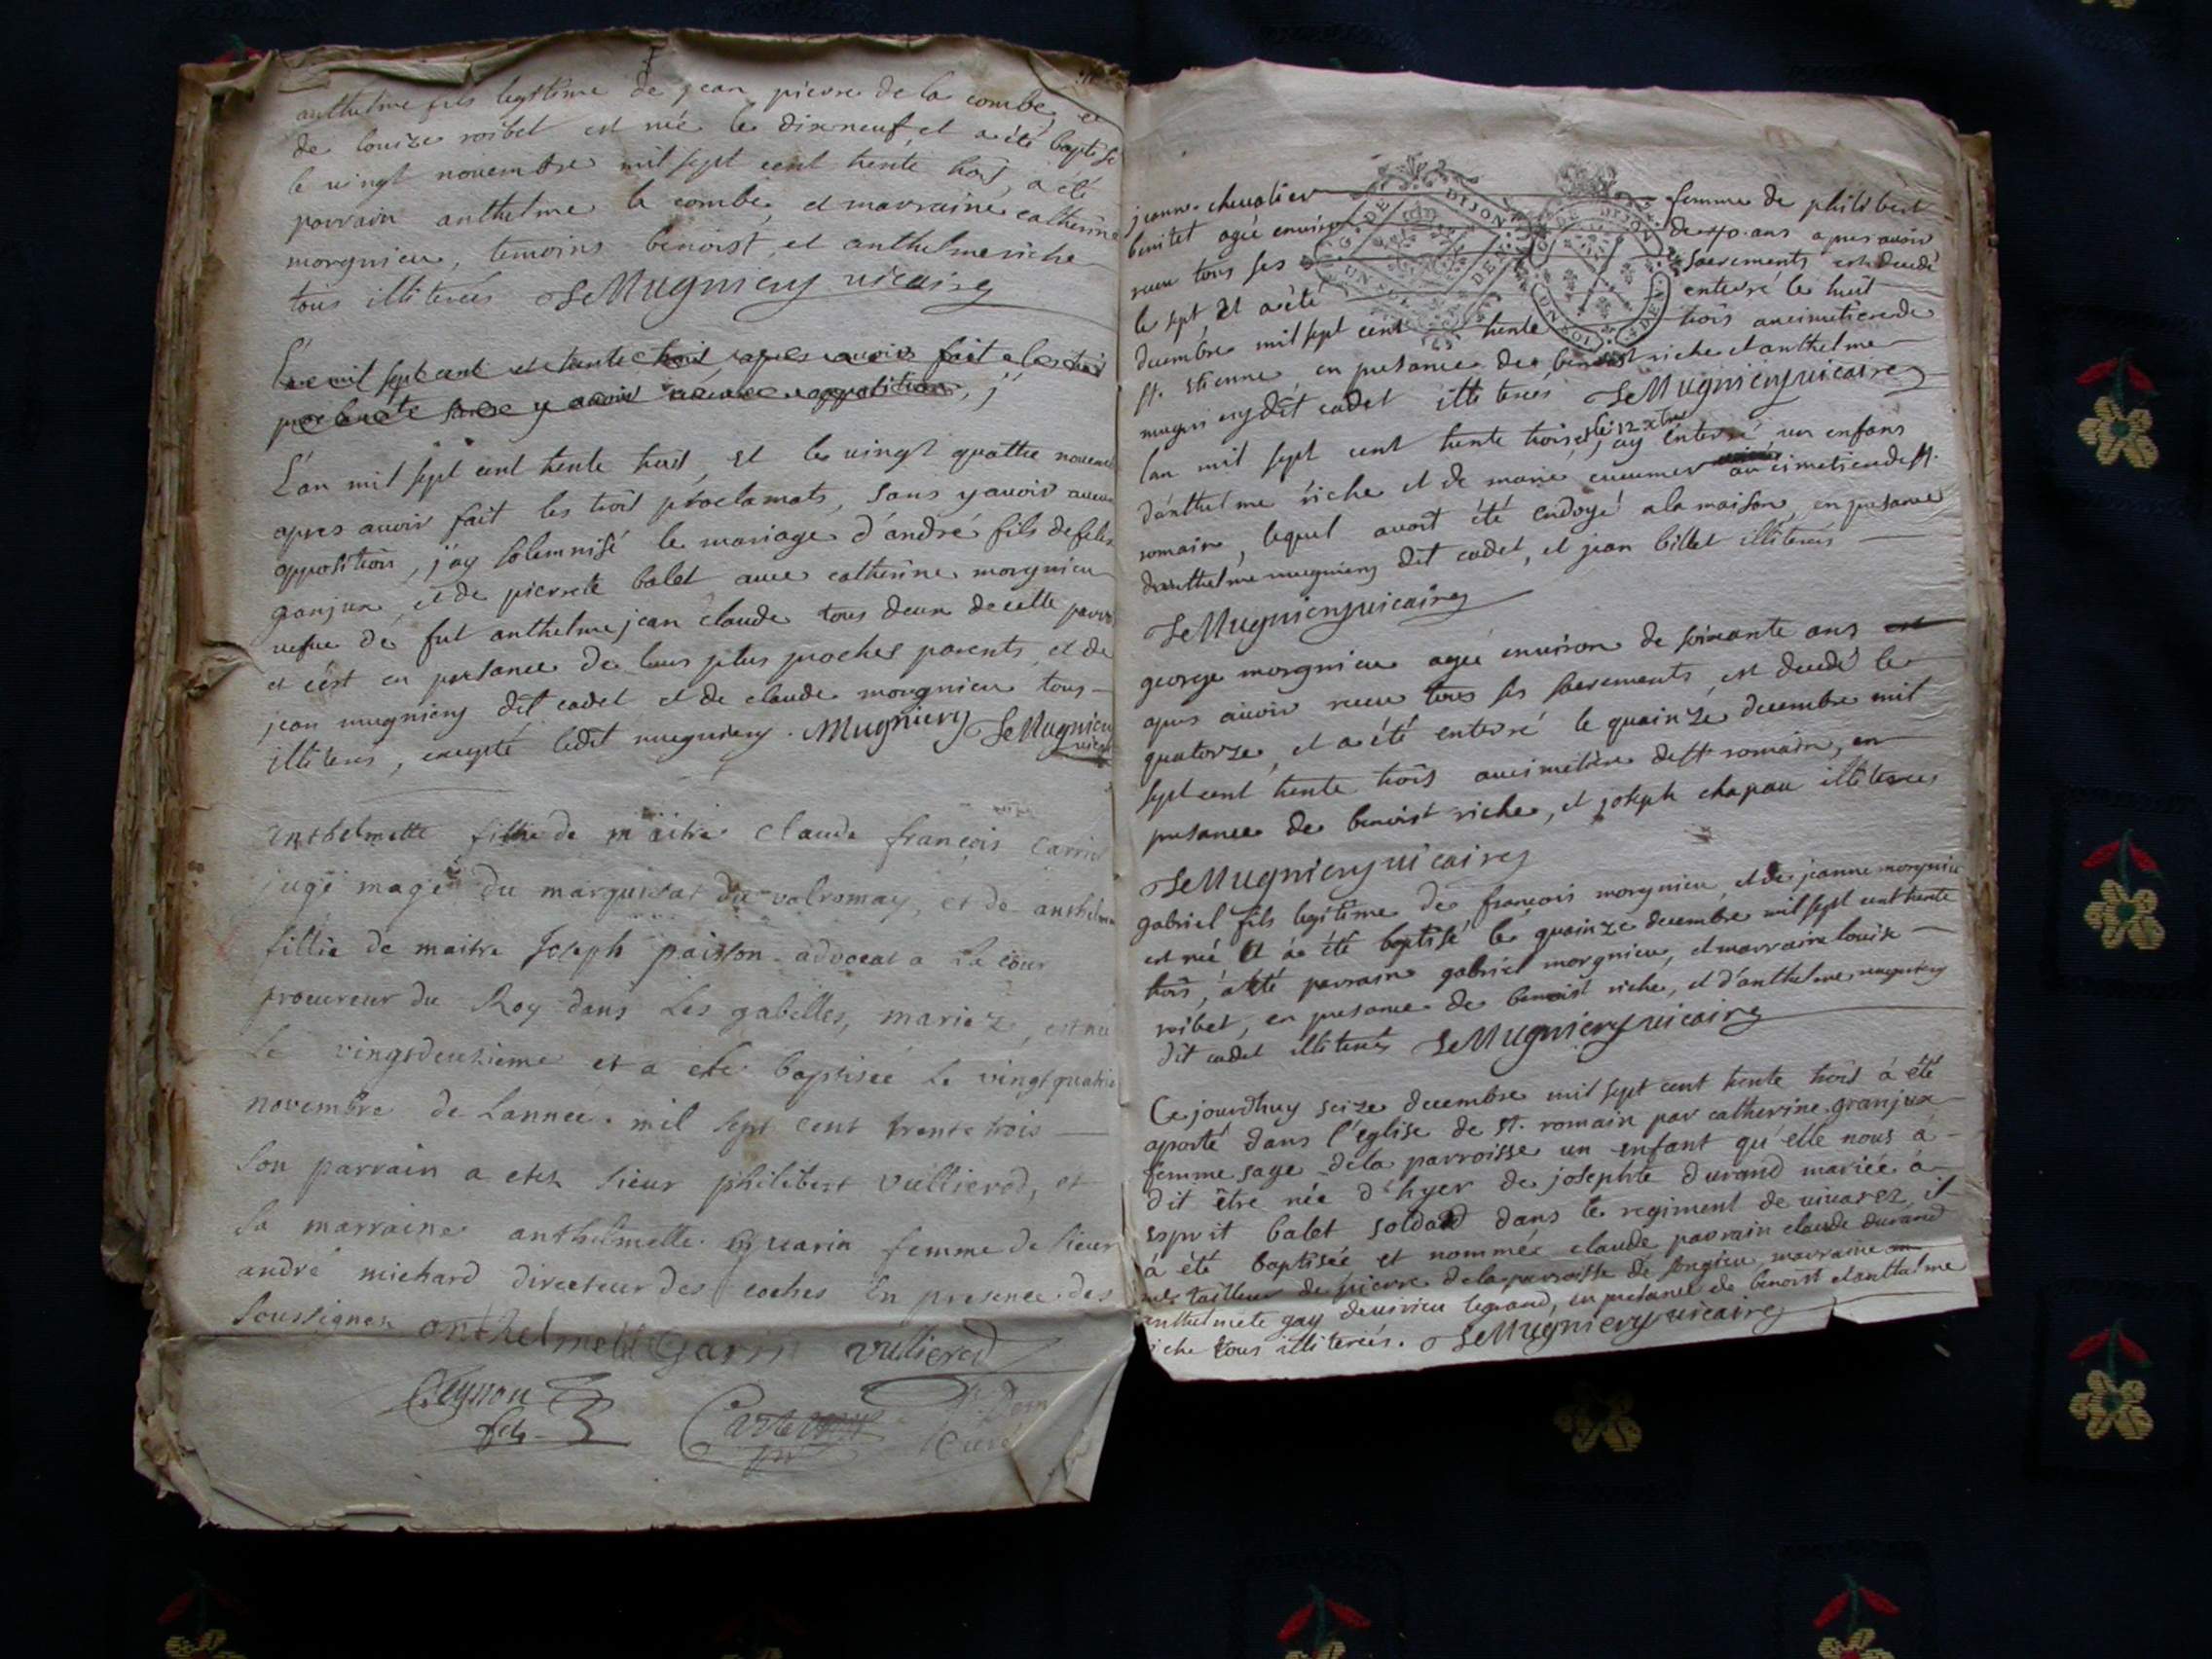 anthelme fils legitime de jean pierre de la combe, et
de louize roibet est née le dixneuf, et a été baptisé
le vingt novembre mil sept cent trente trois, a été
parrain anthelme la combe, et marraine catherine
morgnieu, temoins benoist, et anthelme riche
tous illiterés SeMugniery vicaire
L'an mil sept cent et trente trois, apres avoir fait les trois
j'
L'an mil sept cent trente trois, et le vingt quattre novem
apres avoir fait les trois proclamats, sans y avoir aucun
opposition, j'ay solemnisé le mariage d'andré fils de feu
ganjux, et de pierrete balet avec catherine morgnieu
vefve de fut anthelme jean claude tous deux de cette parro
et c'est en presance de leurs plus proches parents, et de
jean mugniery dit cadet et de claude morgnieu tous
illiterés, excepté ledit mugniery. Mugniery SeMugniery
vicaire
anthelmette fillie de maitre claude françois Carrier
juge mage du marquisat du valromay, et de anthelme
fillie de maitre Joseph paisson advocat a la cour
procureur du Roy dans Les gabelles, mariez, est née
le vingtdeuxieme et a ete baptisée le vingtquatrie
novembre de Lannee mil sept cent trente trois
son parrain a etez sieur philibert vullierod, et
sa marraine anthelmette garin femme de sieur
andré michard directeur des coches En presence des
soussignez anthelmette Garin vullierod
Peysson
fils
Curé
jeanne chevalier femme de philibert
benitet agée environ de 40 ans apres avoir
receu tous ses sacrements est decedé
le sept, et a été enterré le huit
decembre mil sept cent trente trois au cimetiere de
st. etienne, en presance de benoist riche et anthelme
mugniery dit cadet illiterés SeMugniery vicaire
le 12 xbre
l'an mil sept cent trente trois, et j'ay enterré un enfans
d'anthelme riche et de marie cucumer au cimetiere de st.
romain, lequel avoit été endoyé a la maison, en presance
d'anthelme mugniery dit cadet, et jean billet illiterés
SeMugniery vicaire
george morgnieu agée environ de soixante ans
apres avoir receu tous ses sacrements, est decedé le
quatorze, et a été enterré le quainze decembre mil
sept cent trente trois au cimetiere de st romain, en
presance de benoist riche, et joseph chapau illiterés
SeMugniery vicaire
gabriel fils legitime de françois morgnieu, et de jeanne morgnieu
est né et a été baptisé le quainze decembre mil sept cent trente
trois, a été parrain gabriel morgnieu, et marraine louise
roibet, en presance de benoist riche, et d'anthelme mugniery
dit cadet illiterés SeMugniery vicaire
Ce jourdhuy seize decembre mil sept cent trente trois à été
aporté dans l'eglise de st. romain par catherine granjux
femme sage dela parroisse un enfant qu'elle nous a
dit être née d'hyer de josephte durand mariée à
esprit balet soldad dans le regiment de vivarez, il
à été baptisée et nommée claude parrain claude durand
tailleur de pierre dela parroisse de songieu, marraine
anthelmete gay de virieu legrand, en presance de benoist et anthelme
riche tous illiterés. SeMugniery vicaire